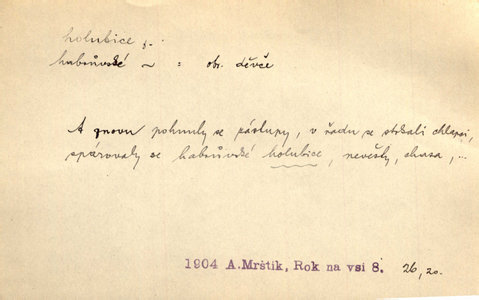 holubice, f.
habrůvské ~ : obr. děvče
A znovu pohnuly se zástupy, v řadu se stokali chlapci,
spárovaly se habrůvské holubice, nevěsty, chasa, ...
1904 A.Mrštík, Rok na vsi 8. 26, 20.